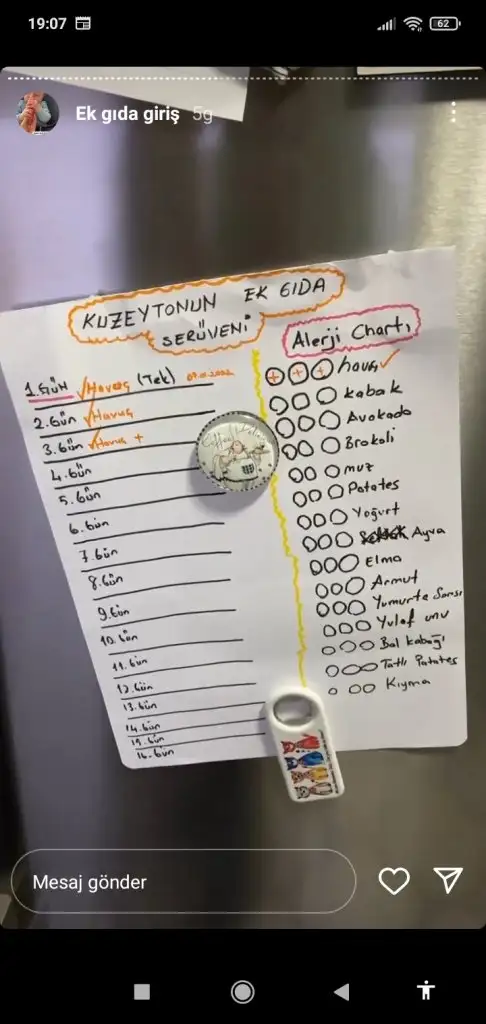 19:07
62
Ek gıda giriş 5g
KUZEYTONUN EK GIDA
SERÜVENİ
1.GÜN ✓Havuç (Tek)
2.Gün ✓Havuç
3.Gün ✓Havuç +
4.Gün
5.Gün
6.Gün
7.Gün
8.Gün
9.Gün
10.Gün
11.Gün
12.Gün
13.Gün
14.Gün
15.Gün
16.Gün
Alerji Chartı
havuç ✓
kabak
Avokado
Brokoli
muz
Patates
Yoğurt
Ayva
Elma
Armut
Yumurta Sarısı
Yulaf unu
Bal kabağı
Tatlı Patates
Kıyma
Mesaj gönder